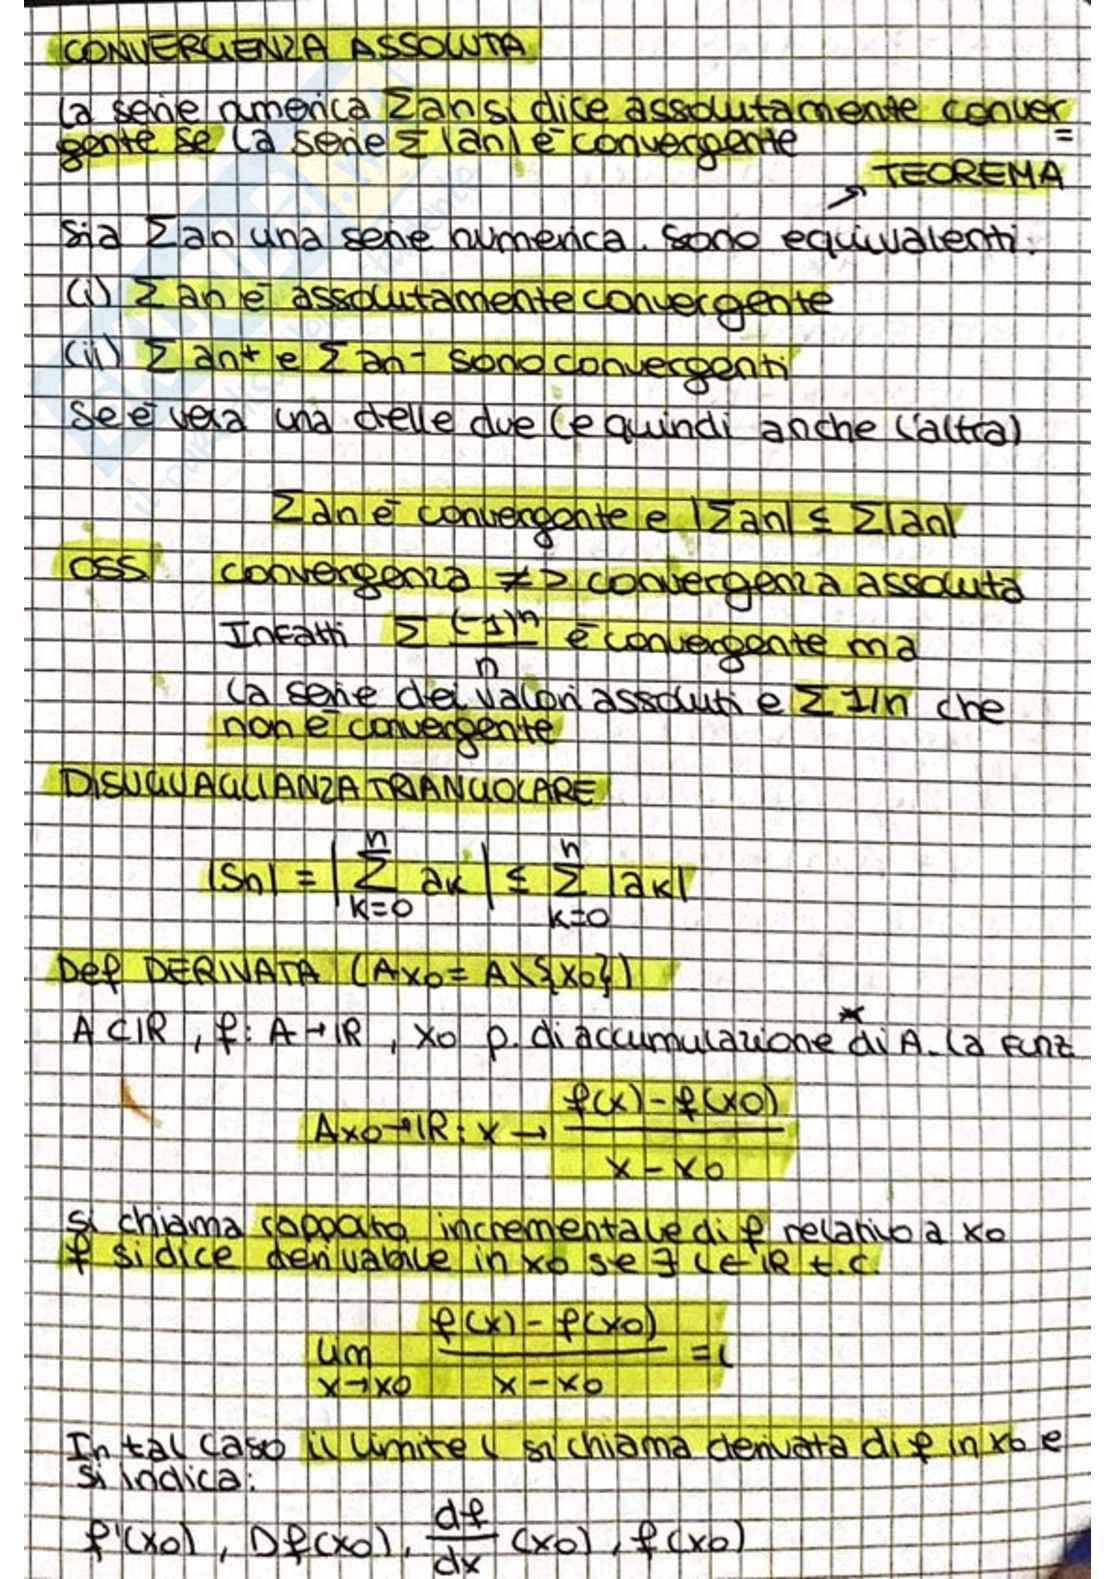 CONVERGENZA ASSOLUTA
La serie numerica Σan si dice assolutamente conver=
gente se la serie Σ |an| è convergente
→ TEOREMA
Sia Σan una serie numerica. Sono equivalenti:
(i) Σan è assolutamente convergente
(ii) Σ an+ e Σ an- sono convergenti
Se è vera una delle due (e quindi anche l'altra)
Σan è convergente e |Σan| ≤ Σ|an|
OSS. convergenza ≠> convergenza assoluta
Infatti Σ (-1)^n / n è convergente ma
la serie dei valori assoluti e Σ 1/n che
non è convergente
DISUGUAGLIANZA TRIANGOLARE
|Sn| = | Σ_{k=0}^{n} ak | ≤ Σ_{k=0}^{n} |ak|
Def DERIVATA (Ax0 = A\{x0})
A⊂IR, f: A→IR, x0 p. di accumulazione* di A. La funz
Ax0→IR: x → f(x)-f(x0) / x-x0
si chiama rapporto incrementale di f relativo a x0
f si dice derivabile in x0 se ∃ l∈IR t.c.
lim x→x0 f(x)-f(x0) / x-x0 = l
In tal caso il limite l si chiama derivata di f in x0 e
si indica:
f'(x0), Df(x0), df/dx (x0), f(x0)